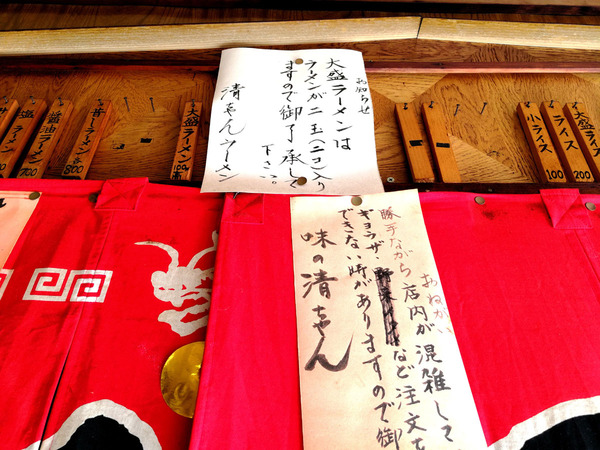 お知らせ
大盛ラーメンは
ラーメンが二玉(二コ)入り
ますので御了承く
下さい。
清ちゃんラーメン
おねがい
勝手ながら店内が混雑して
ギョウザ・など注文を
できない時がありますので御
味の清ちゃん
醤油ラーメン
700
昔ラーメン
800
大盛
ラーメン
100円
高
小ライス
100
ライス
200
大盛ライス